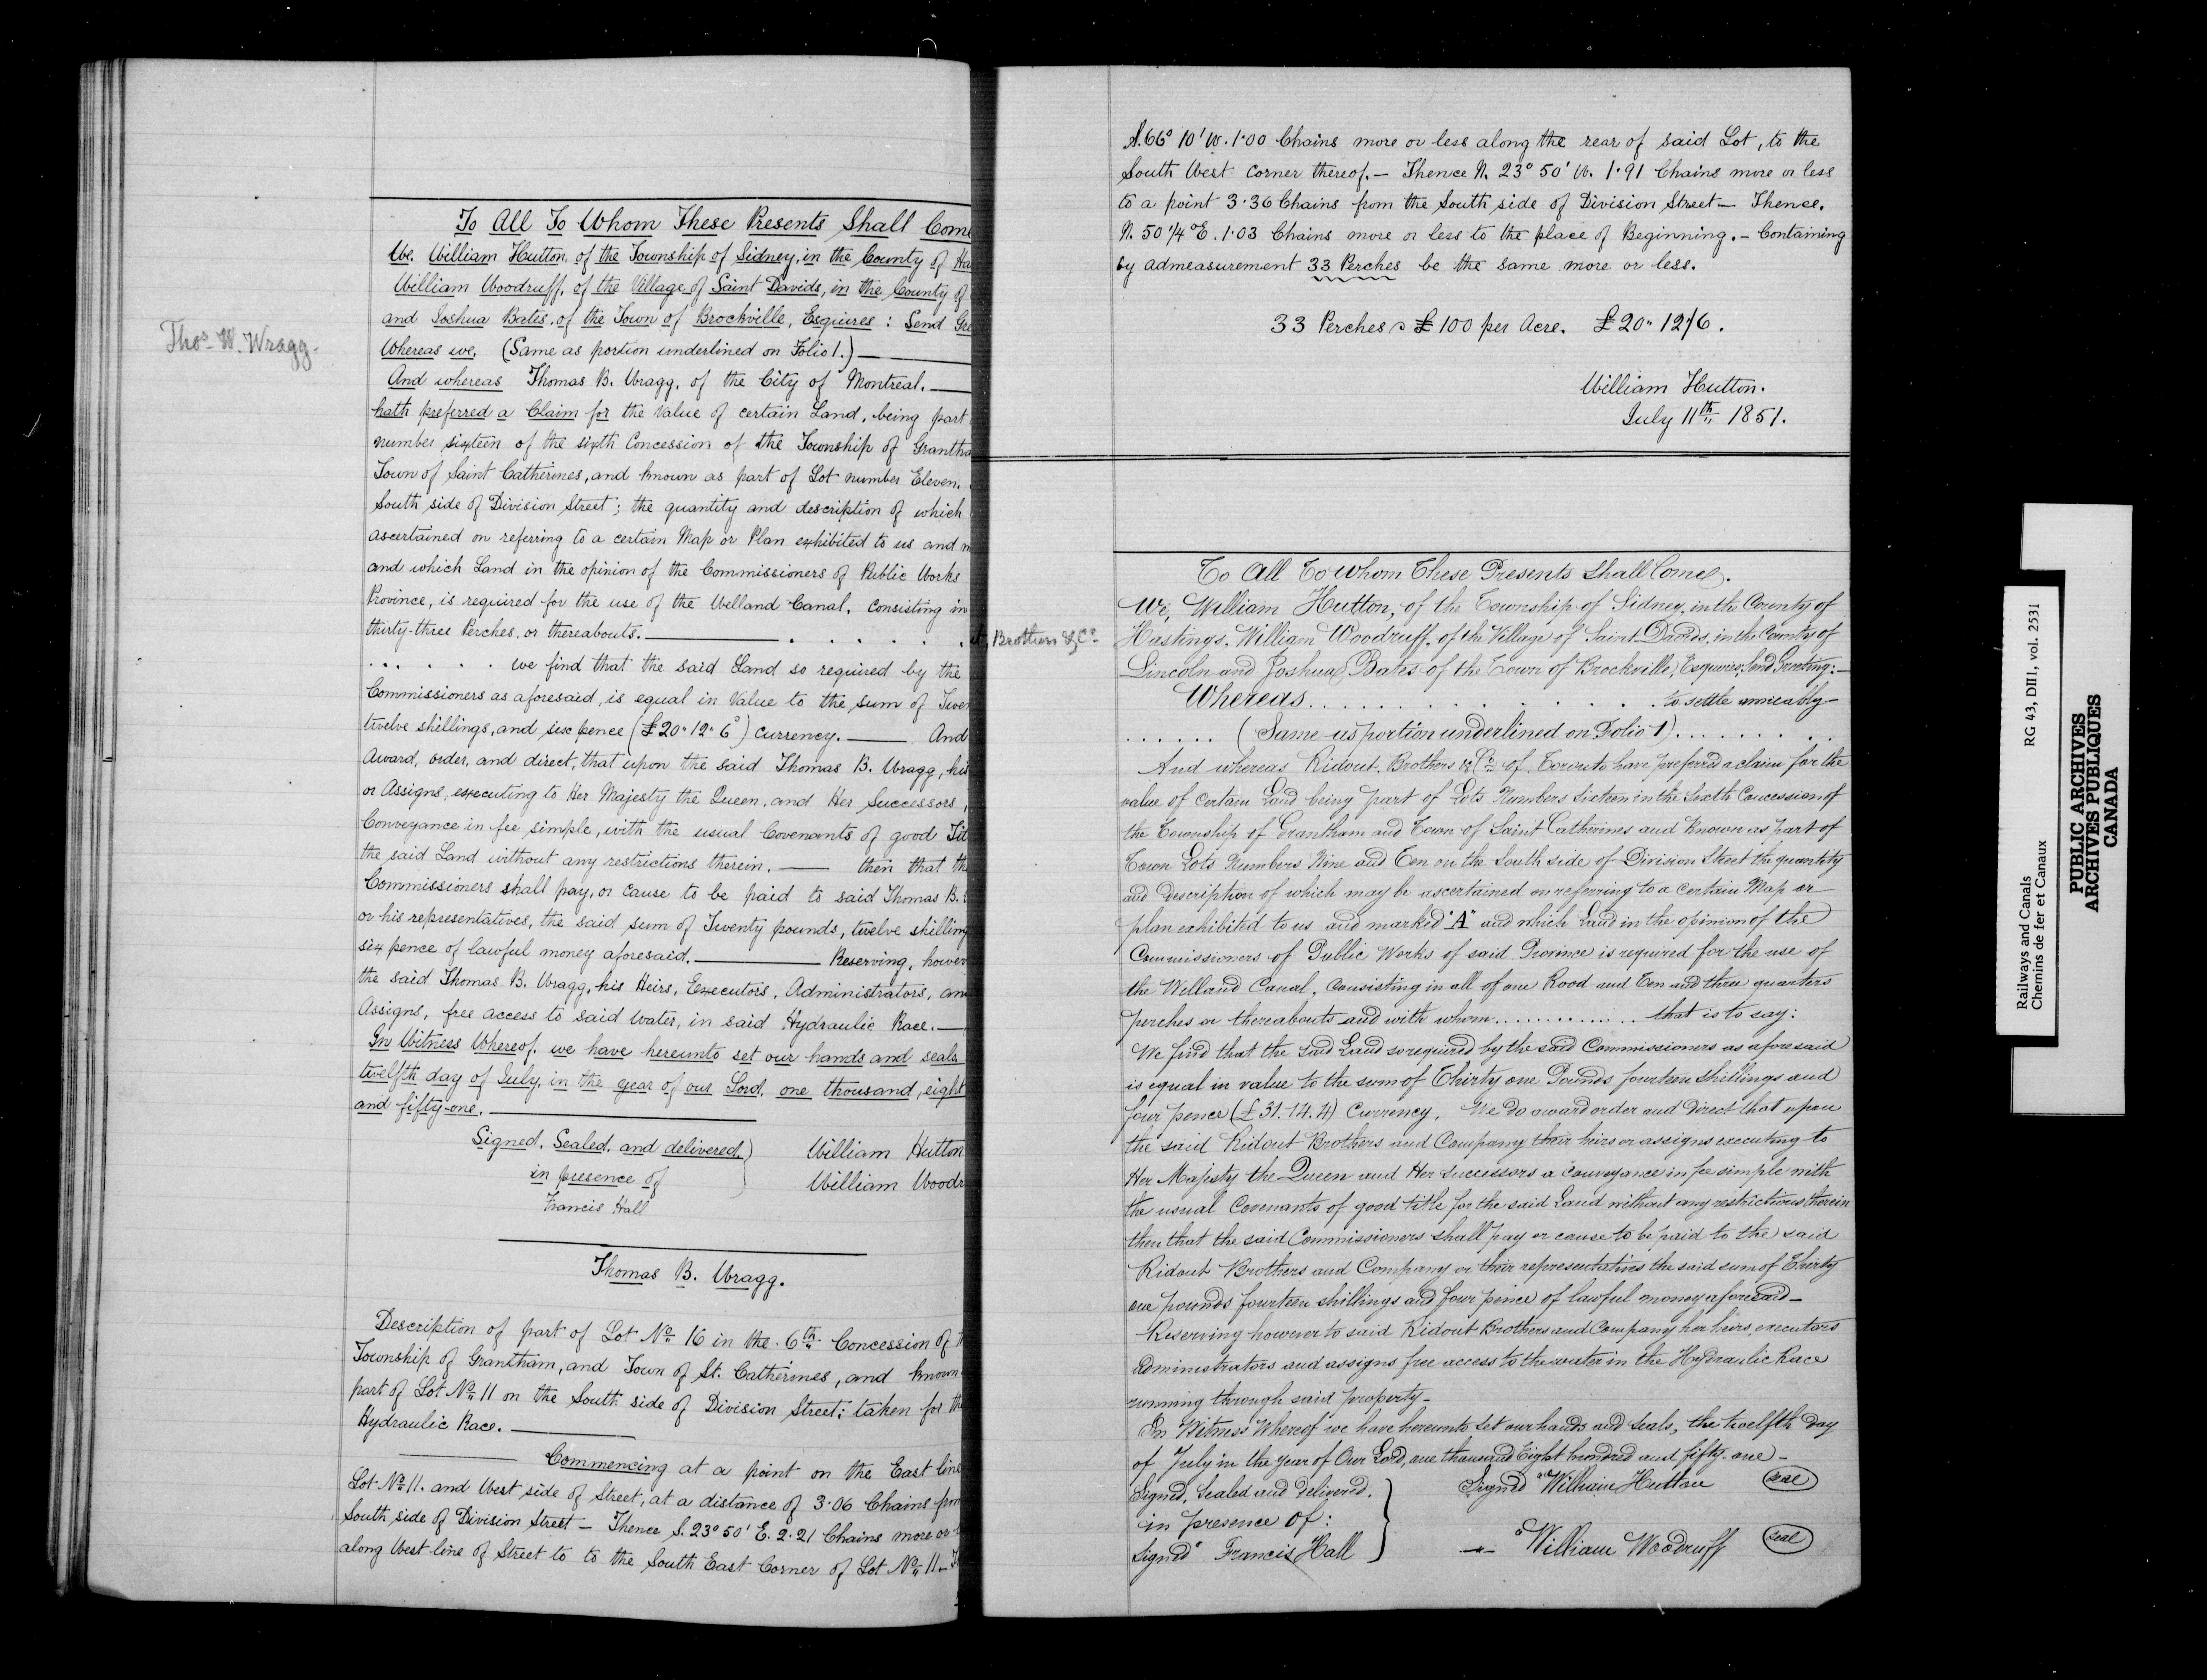 Thos. W. Wragg.
To All To Whom These Presents Shall Come
We. William Hutton, of the Township of Sidney, in the County of Ha
William Woodruff, of the Village of Saint Davids, in the County of
and Joshua Bates, of the Town of Brockville, Esquires: Send Gre
Whereas we, (Same as portion underlined on Folio 1.)
And whereas Thomas B. Wragg, of the City of Montreal.
hath preferred a Claim for the value of certain Land, being part
number sixteen of the sixth Concession of the Township of Grantha
Town of Saint Catherines, and known as part of Lot number Eleven,
South side of Division Street; the quantity and description of which
ascertained on referring to a certain Map or Plan exhibited to us and m
and which Land in the opinion of the Commissioners of Public Works
Province, is required for the use of the Welland Canal, consisting in
thirty-three Perches, or thereabouts. . . . . . .
. . . . . . we find that the said Land so required by the
Commissioners as aforesaid, is equal in Value to the sum of Twe
twelve shillings, and six pence (£20 " 12 " 6) currency. And
Award, order, and direct, that upon the said Thomas B. Wragg, his
or Assigns, executing to Her Majesty the Queen, and Her Successors,
Conveyance in fee simple, with the usual Covenants of good Tit
the said Land without any restrictions therein. then that the
Commissioners shall pay, or cause to be paid to said Thomas B.
or his representatives, the said sum of Twenty pounds, twelve shilling
six pence of lawful money aforesaid. Reserving, howev
the said Thomas B. Wragg, his Heirs, Executors, Administrators, an
Assigns, free access to said water, in said Hydraulic Race.
In Witness Whereof, we have hereunto set our hands and seals
twelfth day of July, in the year of our Lord, one thousand, eight
and fifty-one.
Signed, Sealed, and delivered, William Hutton
in presence of William Woodr
Francis Hall
Thomas B. Wragg.
Description of part of Lot No. 16 in the 6th Concession of
Township of Grantham, and Town of St. Catherines, and known
part of Lot No. 11 on the South side of Division Street; taken for the
Hydraulic Race.
Commencing at a point on the East line
Lot No. 11. and West side of Street, at a distance of 3.06 Chains from
South side of Division Street – Thence S. 23° 50' E. 2.21 Chains more or
along West line of Street to to the South East Corner of Lot No. 11.
S. 66° 10' W. 1.00 Chains more or less along the rear of said Lot, to the
South West corner thereof. – Thence N. 23° 50' W. 1.91 Chains more or less
to a point 3.36 Chains from the South side of Division Street – Thence.
N. 50 1/4° E. 1.03 Chains more or less to the place of Beginning. – Containing
by admeasurement 33 Perches be the same more or less.
33 Perches @ £100 per Acre. £20 " 12/6.
William Hutton.
July 11th 1851.
Brothers & Co.
To All To Whom These Presents Shall Come.
We, William Hutton, of the Township of Sidney, in the County of
Hastings, William Woodruff, of the Village of Saint Davids, in the County of
Lincoln and Joshua Bates of the Town of Brockville, Esquires, Send Greeting:–
Whereas . . . . . . . . . . . . . to settle amicably
. . . . . . (Same as portion underlined on Folio 1) . . . . . . . .
And whereas Ridout, Brothers & Co. of Toronto have preferred a claim for the
value of certain Land being part of Lots Numbers Sixteen in the Sixth Concession of
the Township of Grantham and Town of Saint Catherines and Known as part of
Town Lots Numbers Nine and Ten on the South side of Division Street the quantity
and description of which may be ascertained on referring to a certain Map or
plan exhibited to us and marked "A" and which Land in the opinion of the
Commissioners of Public Works of said Province is required for the use of
the Welland Canal, consisting in all of one Rood and Ten and three quarters
perches or thereabouts and with whom . . . . . . . . . . . . that is to say:
We find that the said Land so required by the said Commissioners as aforesaid
is equal in value to the sum of Thirty one Pounds fourteen shillings and
four pence (£31. 14. 4) Currency. We do award order and direct that upon
the said Ridout Brothers and Company their heirs or assigns executing to
Her Majesty the Queen and Her Successors a conveyance in fee simple with
the usual Covenants of good title for the said Land without any restrictions therein
then that the said Commissioners shall pay or cause to be paid to the said
Ridout Brothers and Company or their representatives the said sum of Thirty
one pounds fourteen shillings and four pence of lawful money aforesaid –
Reserving however to said Ridout Brothers and Company her heirs, executors
administrators and assigns free access to the water in the Hydraulic Race
running through said property –
In Witness Whereof we have hereunto set our hands and seals, the twelfth day
of July in the year of Our Lord, one thousand Eight hundred and fifty-one –
Signed, Sealed and delivered. Signed "William Hutton seal
in presence of:
Signed" Francis Hall " William Woodruff seal
Railways and Canals RG 43, DIII, vol. 2531
Chemins de fer et Canaux
PUBLIC ARCHIVES
ARCHIVES PUBLIQUES
CANADA